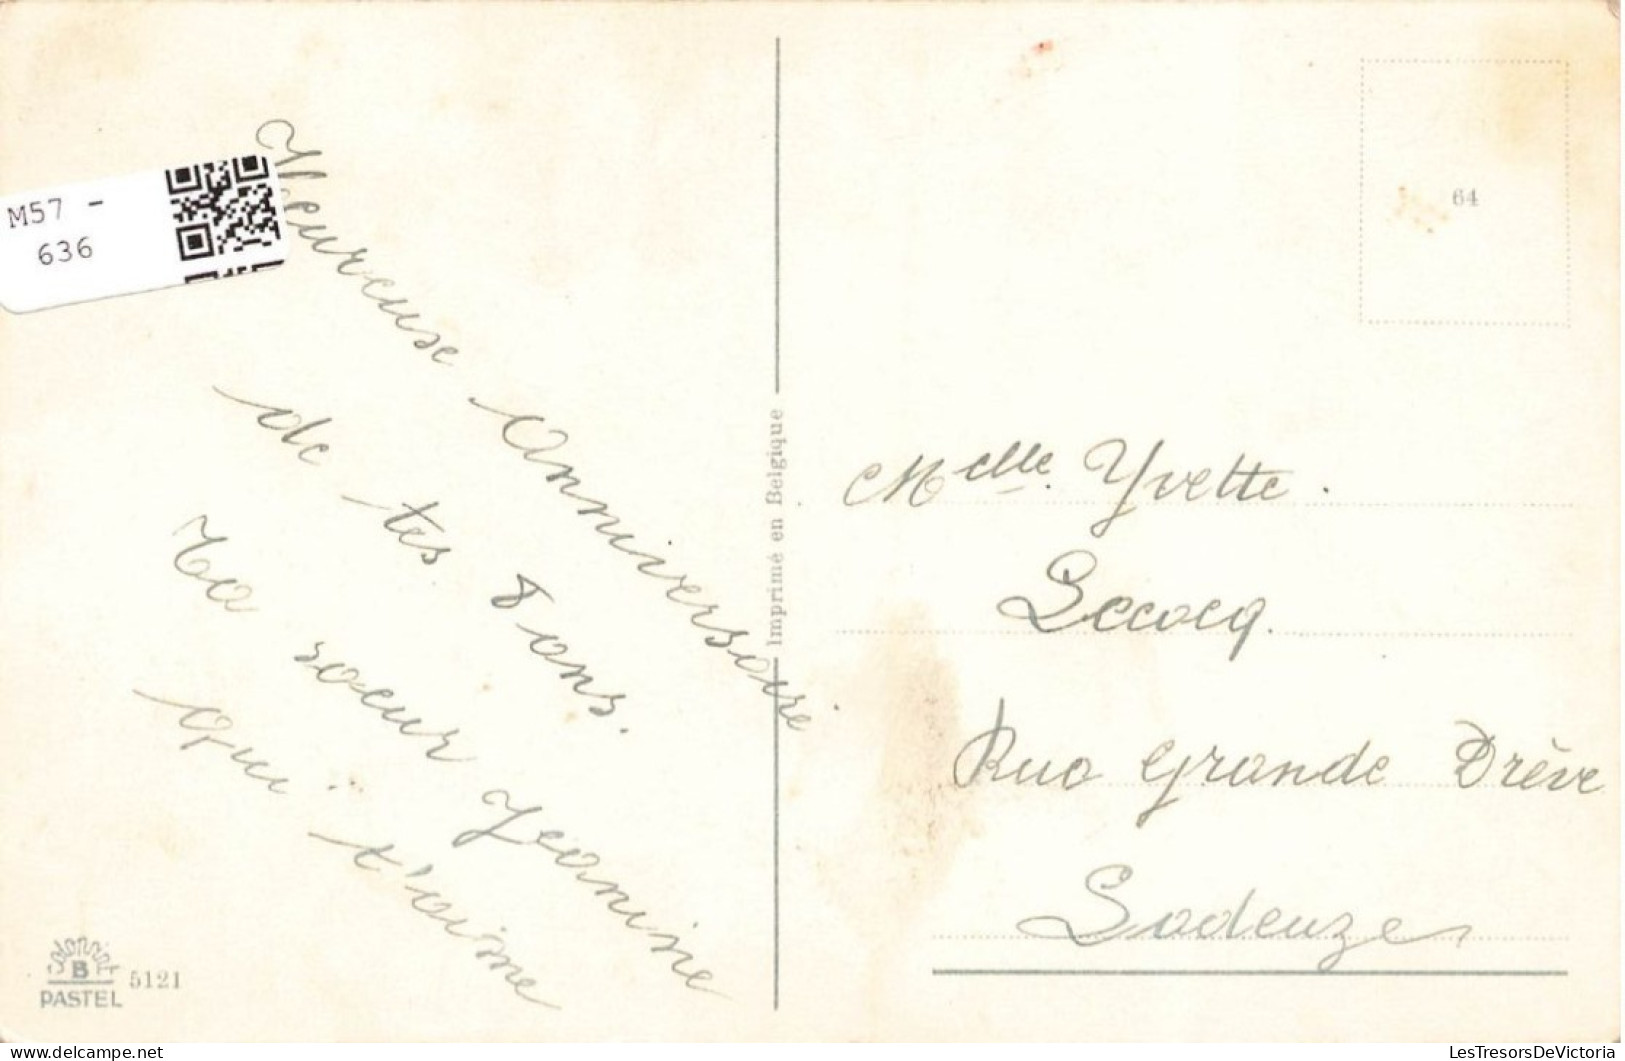 M57 -
636
Heureuse Anniversaire
de tes 8 ans.
Ta soeur Jeanine
qui t'aime
Imprimé en Belgique
64
Melle. Yvette.
Lecocq.
Rue Grande Drève
Ladeuze
colorprint
B
PASTEL 5121
LesTresorsDeVictoria